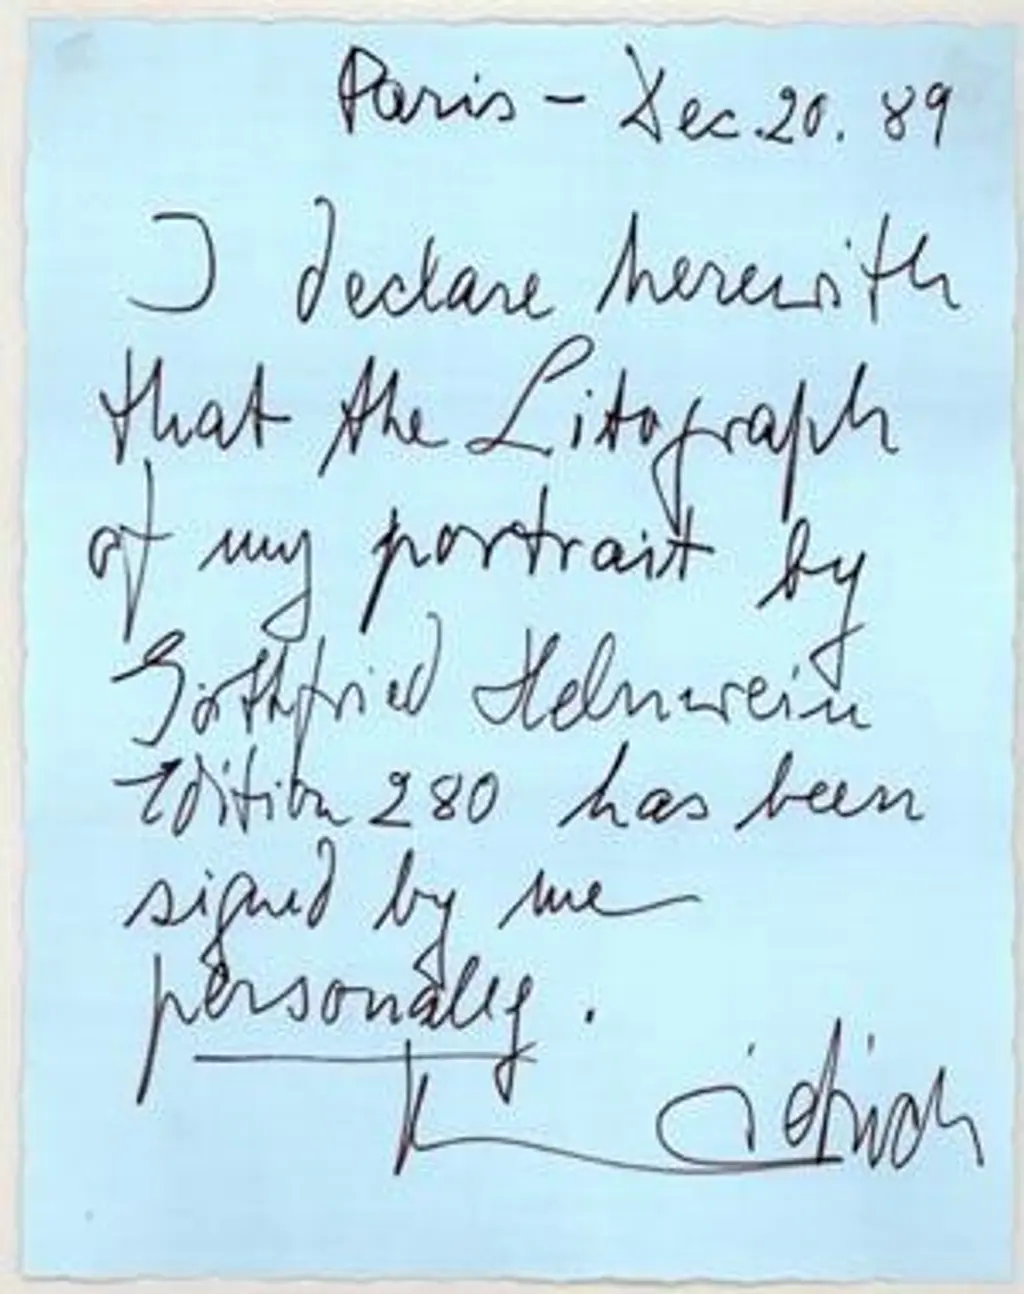 Paris – Dec. 20. 89
I declare herewith
that the Litograph
of my portrait by
Gottfried Helnwein
Edition 280 has been
signed by me
personally.